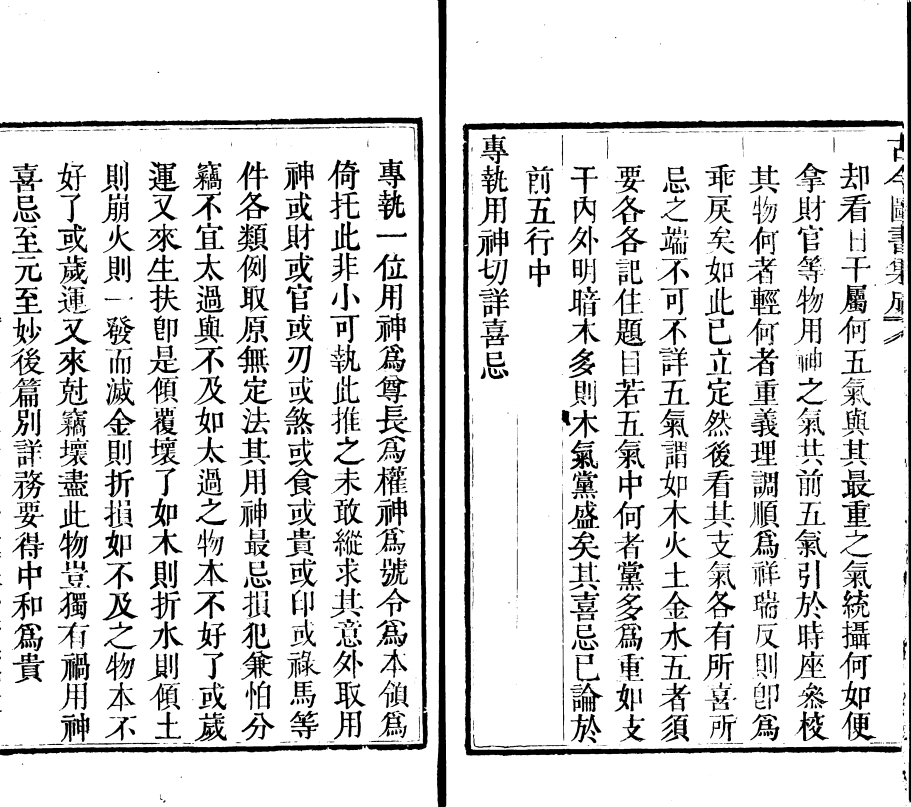 古今圖書集成
却看日干屬何五氣與其最重之氣統攝何如便
拿財官等物用神之氣共前五氣引於時座叅校
其物何者輕何者重義理調順爲祥瑞反則卽爲
乖戾矣如此已立定然後看其支氣各有所喜所
忌之端不可不詳五氣謂如木火土金水五者須
要各各記住題目若五氣中何者黨多爲重如支
干內外明暗木多則木氣黨盛矣其喜忌已論於
前五行中
專執用神切詳喜忌
專執一位用神爲尊長爲權神爲號令爲本領爲
倚托此非小可執此推之未敢縱求其意外取用
神或財或官或刃或煞或食或貴或印或祿馬等
件各類例取原無定法其用神最忌損犯兼怕分
竊不宜太過與不及如太過之物本不好了或歲
運又來生扶卽是傾覆壞了如木則折水則傾土
則崩火則一發而滅金則折損如不及之物本不
好了或歲運又來尅竊壞盡此物豈獨有禍用神
喜忌至元至妙後篇別詳務要得中和爲貴